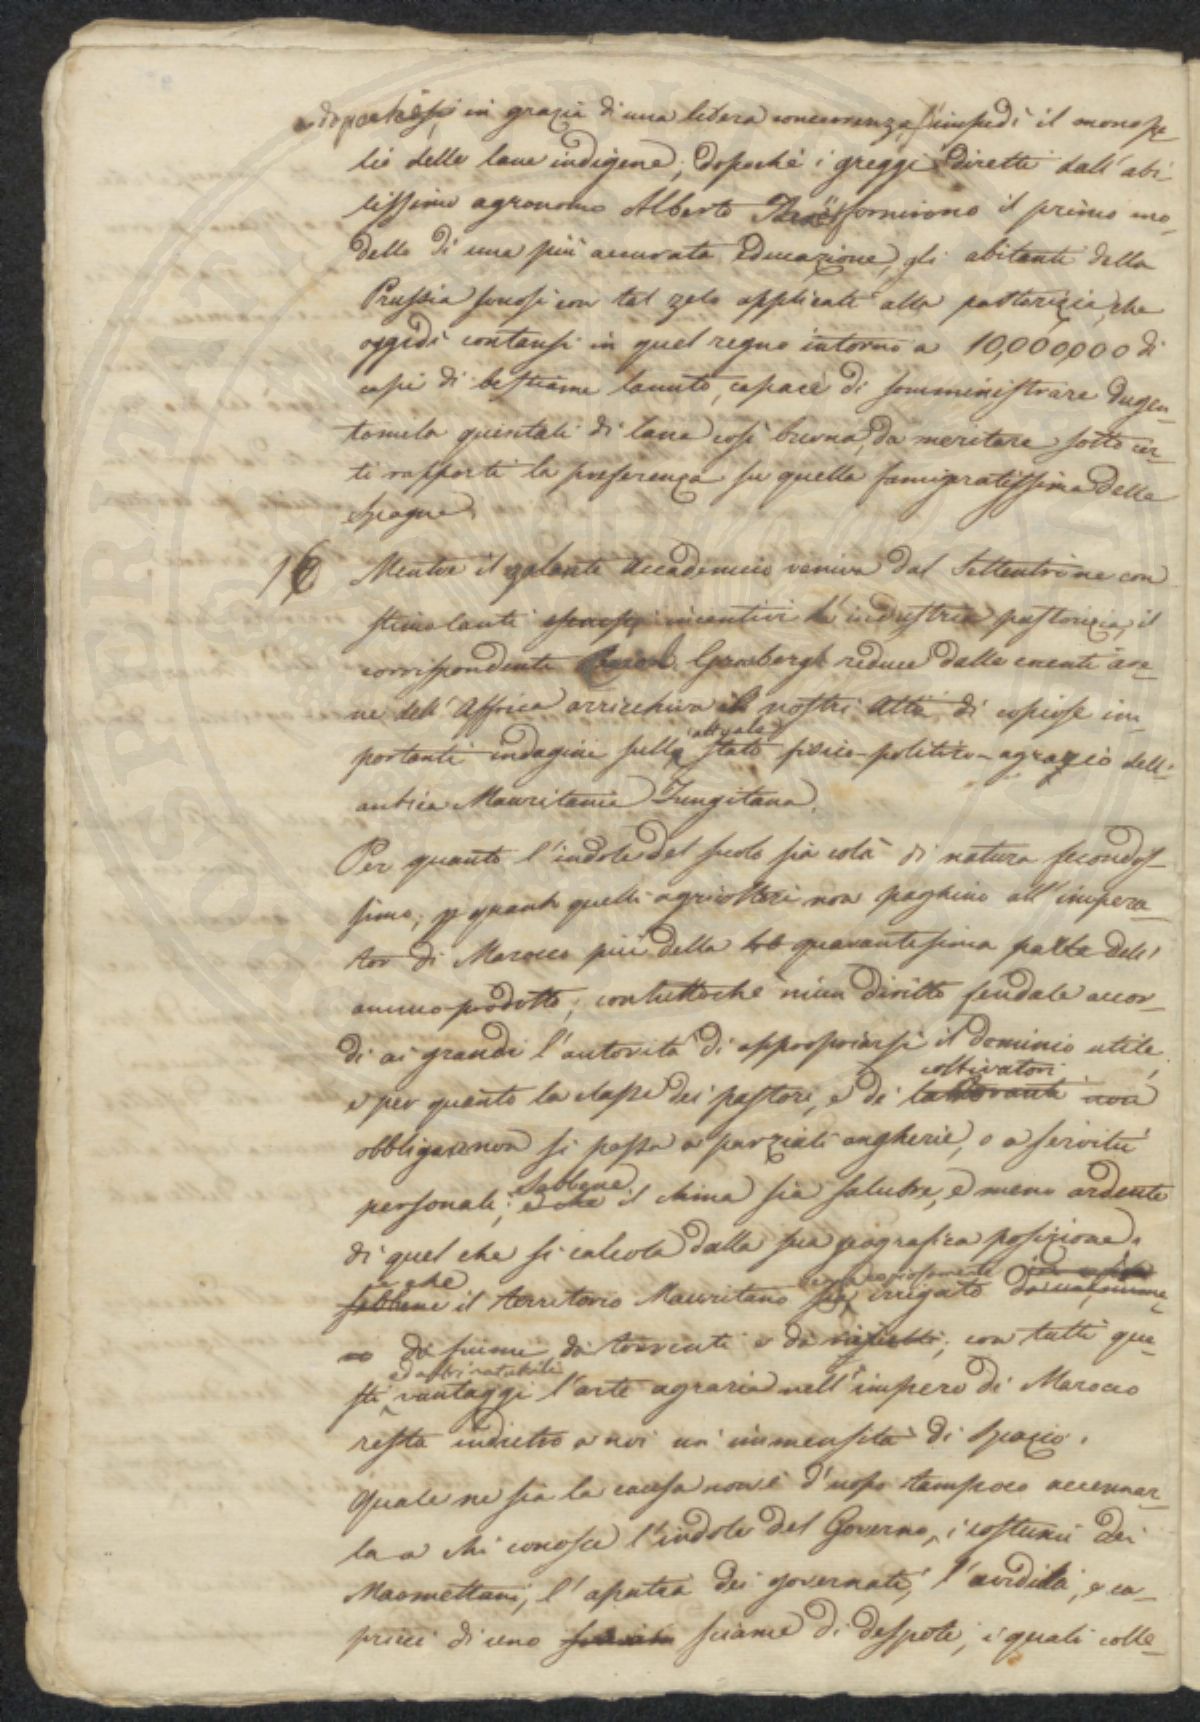 e dopochè in grazia di una libera concorrenza, s'impedì il monopo-
lio delle lane indigene; dopochè i greggi diretti dall'abi-
lissimo agronomo Alberto Thaër fornirono il primo mo-
dello di una più accurata educazione, gli abitanti della
Prussia sonosi con tal zelo applicati alla pastorizia, che
oggidì contansi in quel regno intorno a 10,000,000 di
capi di bestiame lanuto, capace di somministrare dugen-
tomila quintali di lana così buona, da meritare sotto cer-
ti rapporti la preferenza su quella famigeratissima della
Spagna.
16 Mentre il zelante Accademico veniva dal Settentrione con
stimolanti incentivi l'industria pastorizia, il
corrispondente Graberg reduce dalle cocenti are-
ne dell'Affrica arricchiva i nostri Atti di copiose im-
portanti indagini sullo stato attuale fisico-politico-agrario dell'
antica Mauritania Tingitana.
Per quanto l'indole del suolo sia colà di natura fecondis-
simo, p quanto quelli agricoltori non paghino all'impera-
tor di Marocco più della quarantesima parte dell'
annuo prodotto; contuttochè niun diritto feudale accor-
di ai grandi l'autorità di appropriarsi il dominio utile,
e per quanto la classe dei pastori, e di coltivatori lavoranti non
obbligar non si possa a parziali angherie, o a servitù
personali; sebbene e che il clima sia salubre, e meno ardente
di quel che si calcola dalla sua geografica posizione,
e che sebbene il territorio Mauritano sia copiosamente irrigato
da fiumi da torrenti e da ruscelli; con tutti que-
sti ed altri notabili vantaggi l'arte agraria nell'impero di Marocco
resta indietro a noi un'immensità di spazio.
Quale ne sia la causa non è d'uopo tampoco accennar-
la a chi conosce l'indole del Governo, i costumi dei
Maomettani, l'apatia dei governati, l'avidità, e ca-
pricci di uno sciame di despoti, i quali colle-